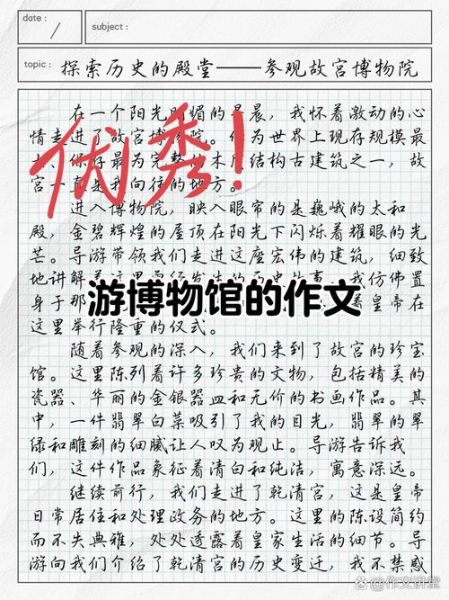 date:
/
subject:
topic: 探索历史的殿堂——参观故宫博物院
优秀!
在一个阳光明媚的早晨，我怀着激动的心
情走进了故宫博物院。作为世界上现存规模最
大、保存最为完整的木质结构古建筑之一，故
宫一直是我向往的地方。
进入博物院，映入眼帘的是巍峨的太和
殿，金碧辉煌的屋顶在阳光下闪烁着耀眼的光
芒。导游带领我们走进这座宏伟的建筑，细致
地讲解着这里曾经发生的历史故事，我仿佛置
身于那 着皇帝在
游博物馆的作文
这里举行隆重的仪式。
随着参观的深入，我们来到了故宫的珍宝
馆。这里陈列着许多珍贵的文物，包括精美的
瓷器、华丽的金银器皿和无价的书画作品。其
中，一件翡翠白菜吸引了我的目光，翡翠的翠
绿和雕刻的细腻让人叹为观止。导游告诉我
们，这件作品象征着清白和纯洁，寓意深远。
继续前行，我们走进了乾清宫，这是皇帝
日常居住和处理政务的地方。这里的陈设简约
而不失典雅，处处透露着皇家生活的细节。导
游向我们介绍了乾清宫的历史变迁，我不禁感
@作文讲堂